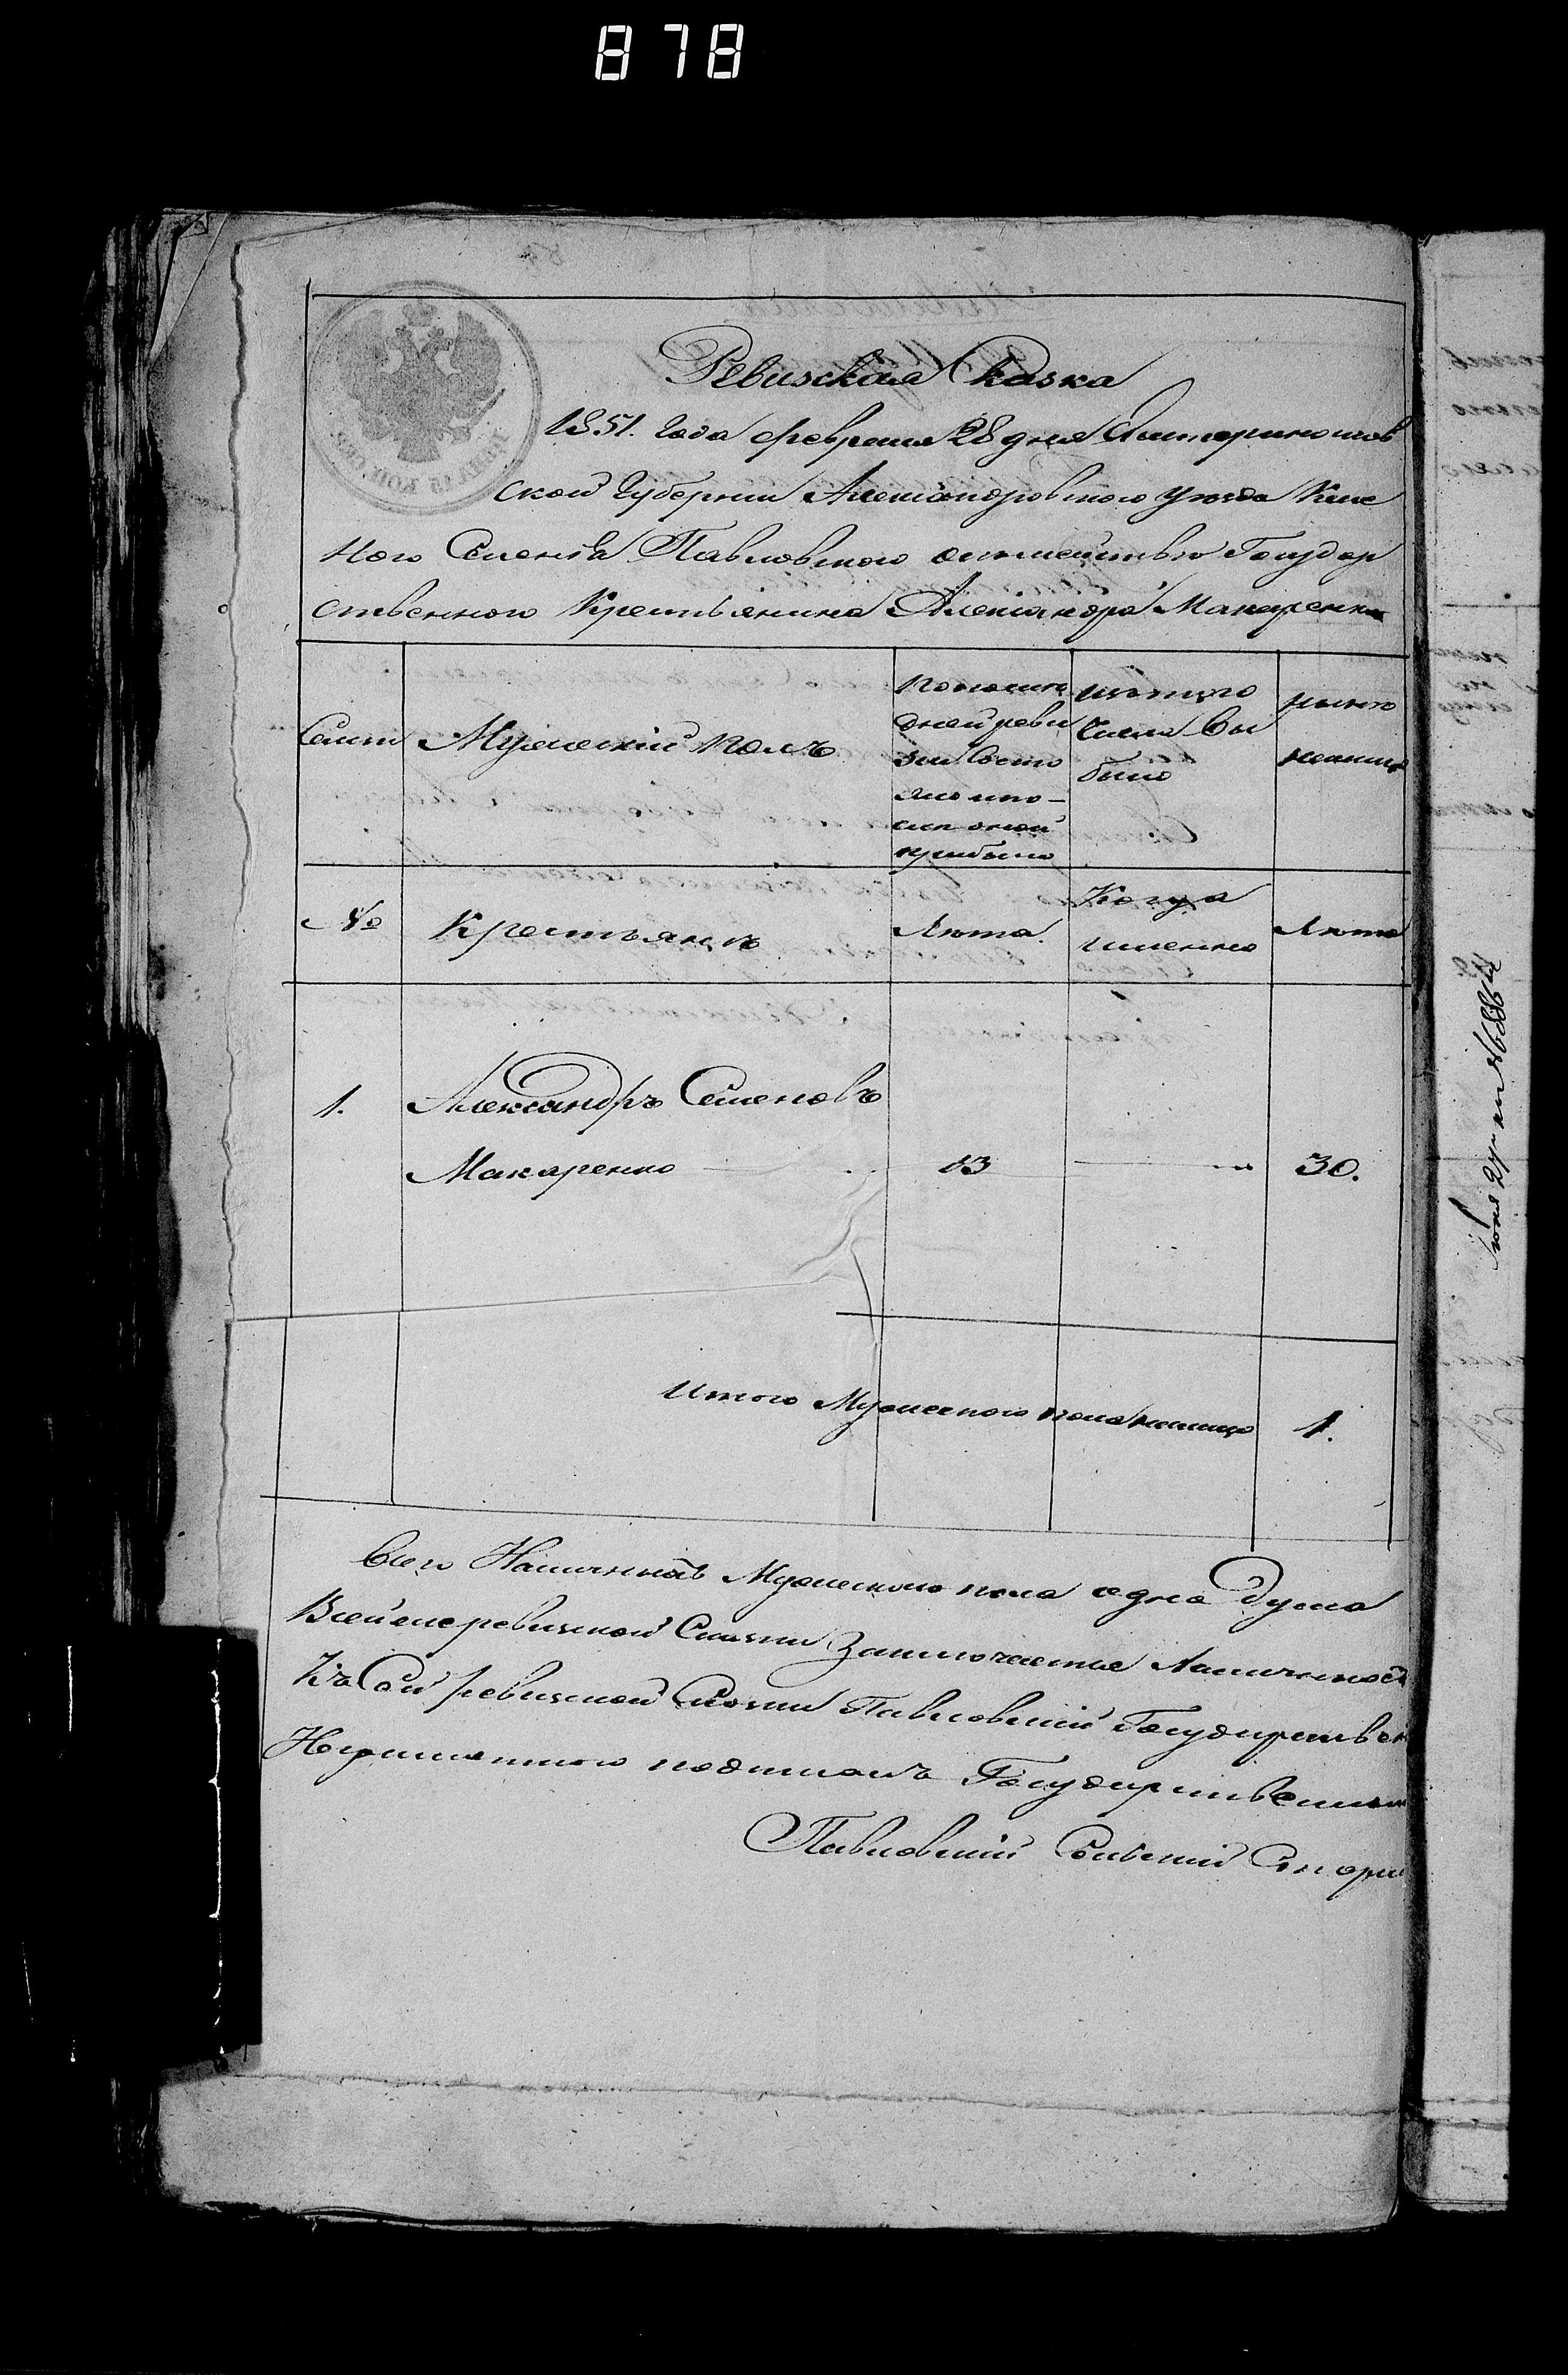 878
Ревизская Сказка
1851. Года февраля 28 дня Екатеринослав
ской Губернии Александровского уезда Казе
ного Селенія Павловского Государ
ственного Крестьянина Александра Макаренка
Семьи
Мужескій полъ
По послед
дней реви
зіи Состо
яло и по-
сле оной
прибыло
изъ того
Числа Вы
было
ныне
налицо
№
Крестьянъ
Лета.
Когда
именно
Лета
1.
Александръ Семеновъ
Макаренко
13
30.
Итого Мужеского пола налицо
1.
Всего Наличныхъ Мужеского пола одна Душа
В сей же ревизской Сказки Заключается
Къ Сей ревизской Сказки Павловскій Государствен
Неграмотного Государственного
Павловскій Сельскій Старши